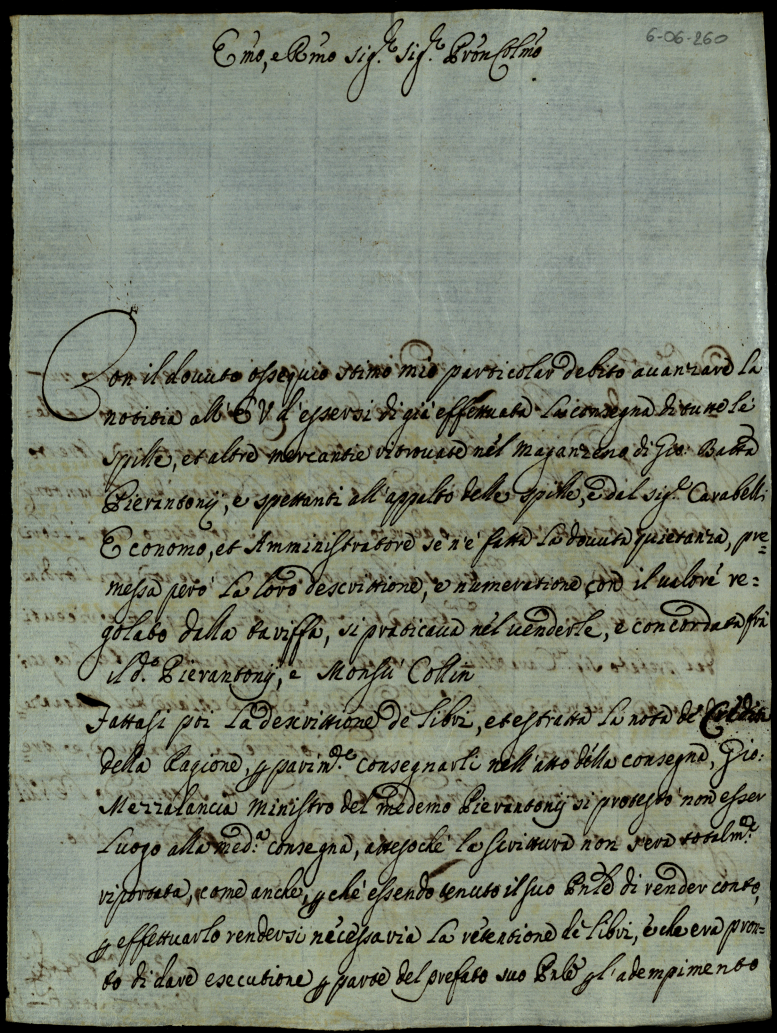 6-06-260
Emo, e Rmo Sig.r Sig.r Pron Colmo
Con il dovuto ossequio stimo mio particolar debito avanzare la
notitia all'E V. d'essersi di già effettuata la consegna di tutte le
spille, et altre mercantie ritrovate nel Maganzeno di Gio: Batta
Pierantonij, e spettanti all'appalto delle spille, e dal sig.r Carabelli
Economo, et Amministratore se n'è fatta la dovuta quietanza, pre=
messa però la loro descrittione, e numeratione con il valore re=
golato dalla tariffa, si praticava nel venderle, e concordata frà
il d.o Pierantonij, e Monsù Collin
Fattasi poi la descrittione de libri, et estratta la nota de Crediti
della Ragione, p parim.te consegnarli nell'atto della consegna, Gio:
Mezzalancia Ministro del medemo Pierantonij si protestò non esser
luogo alla med.a consegna, attesochè la scrittura non s'era totalm.te
riportata, come anche, p chè essendo tenuto il suo Pnle di render conto,
p effettuarlo rendersi necessaria la retentione de libri, e che era pron=
to di dare esecutione p parte del prefato suo Pnle p l'adempimento